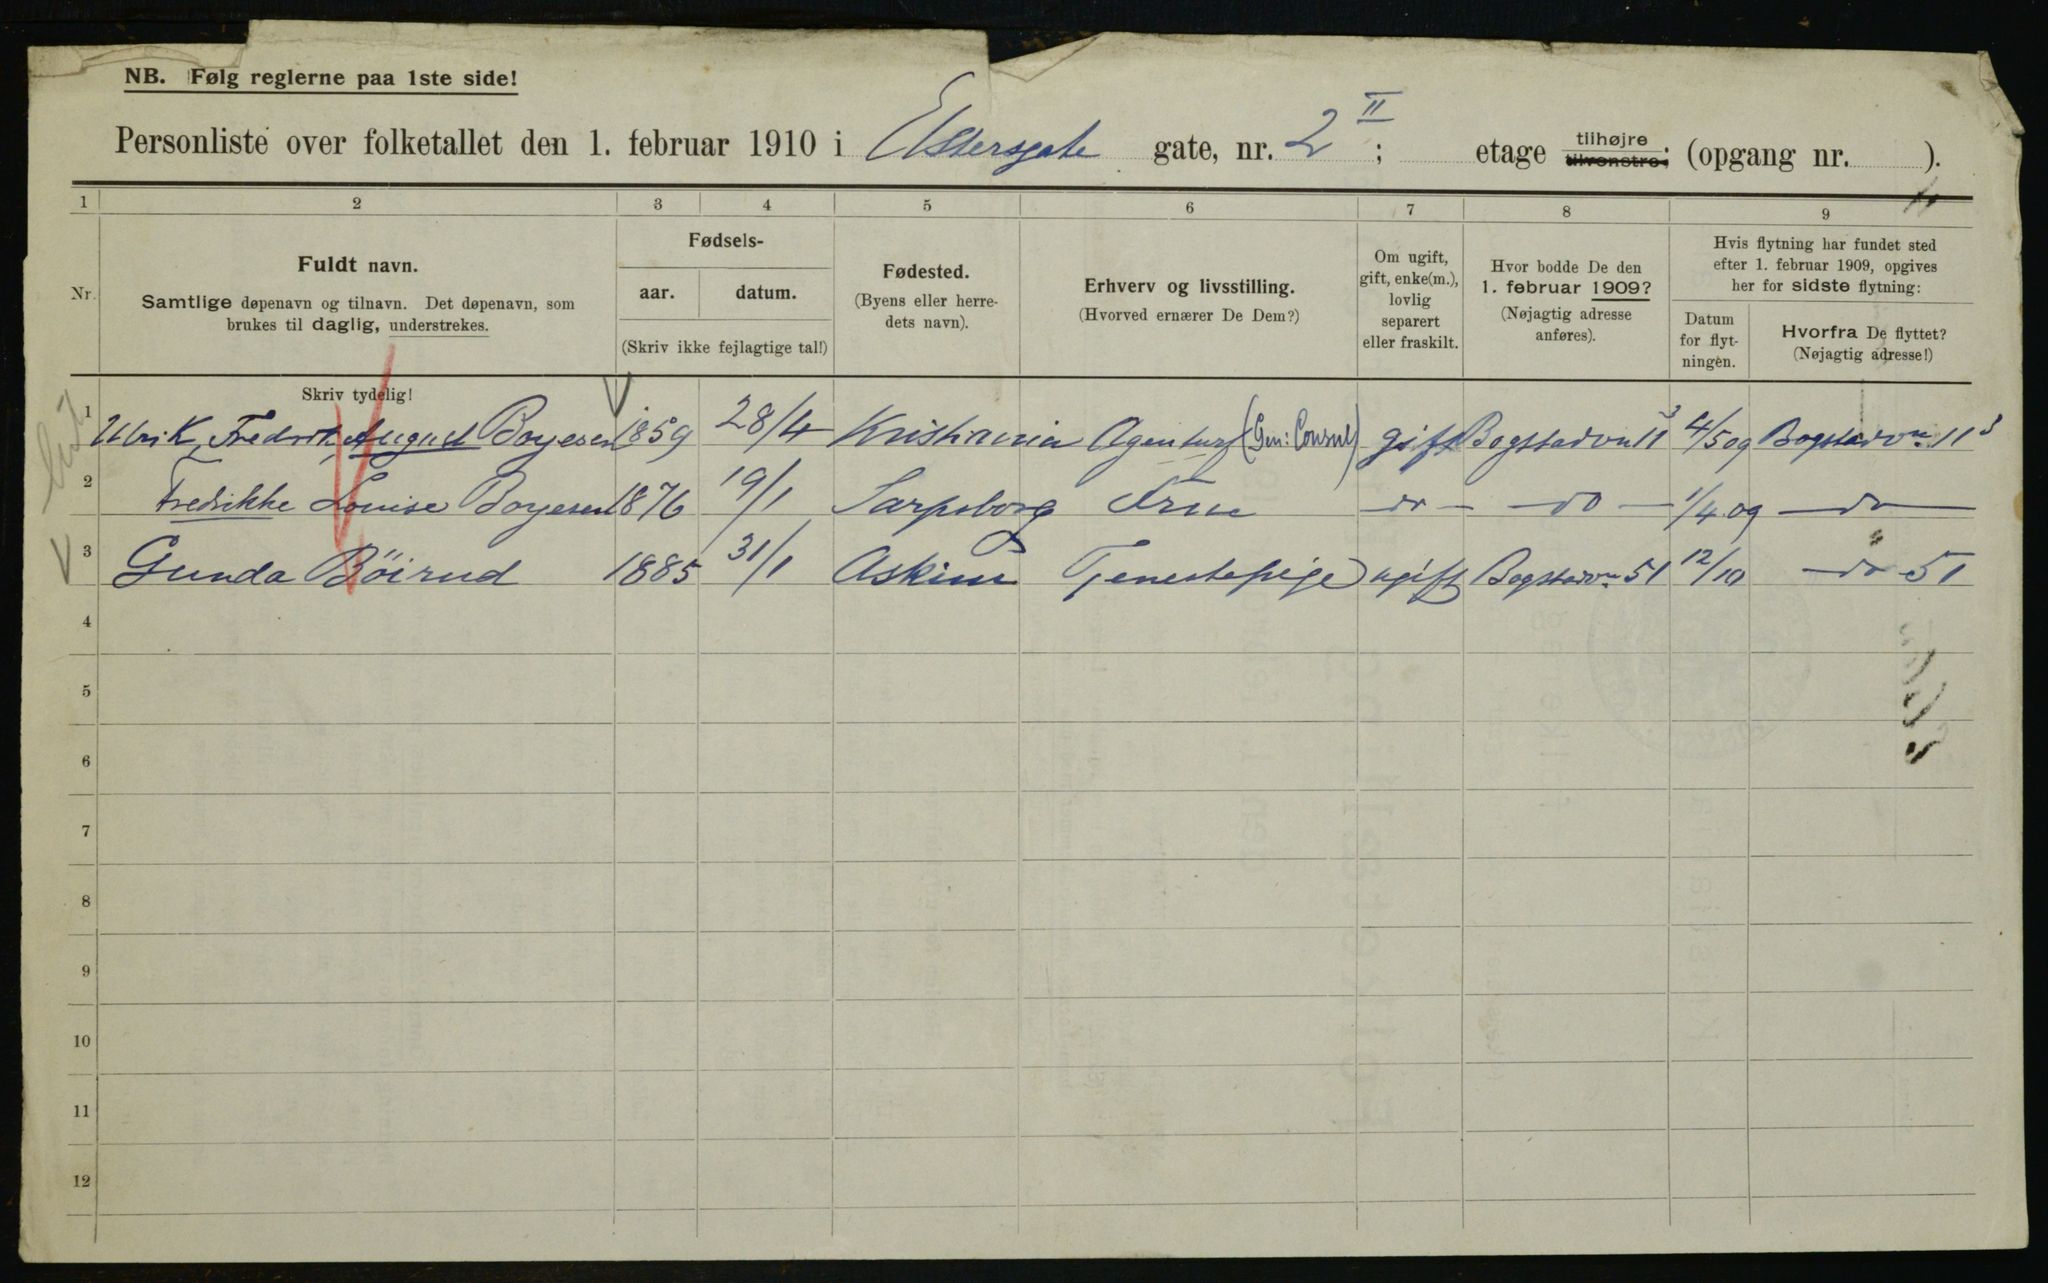 NB. Følg reglerne paa 1ste side!
Personliste over folketallet den 1. februar 1910 i Elstersgate gate, nr. 2 II ; etage tilhøjre tilvenstre: (opgang nr. ).
1 2 3 4 5 6 7 8 9
Nr. Fuldt navn. Samtlige døpenavn og tilnavn. Det døpenavn, som brukes til daglig, understrekes.
Fødsels- aar. datum. (Skriv ikke fejlagtige tal!)
Fødested. (Byens eller herredets navn).
Erhverv og livsstilling. (Hvorved ernærer De Dem?)
Om ugift, gift, enke(m.), lovlig separert eller fraskilt.
Hvor bodde De den 1. februar 1909? (Nøjagtig adresse anføres).
Hvis flytning har fundet sted efter 1. februar 1909, opgives her for sidste flytning:
Datum for flytningen. Hvorfra De flyttet? (Nøjagtig adresse!)
Skriv tydelig!
1 Ulrik Fredrik August Boyesen 1859 28/4 Kristiania Agentur (Gen: Consul) gift Bogstadvn 11 3 4/5 09 Bogstadvn. 11 3
2 Fredrikke Louise Boyesen 1876 19/1 Sarpsborg Frue do - do - 1/4 09 do
3 Gunda Böirud 1885 31/1 Askim Tjenestepige ugift Bogstadvn. 51 12/10 do 51
4
5
6
7
8
9
10
11
12